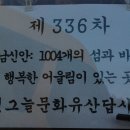 제 336차
남신안: 1004개의 섬과 바
행복한 어울림이 있는 곳
그늘문화유산답사